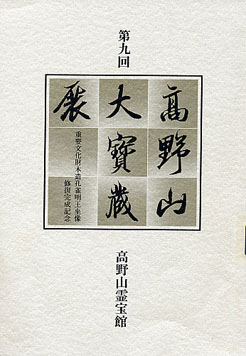 第九回
高野山
大寳蔵
展
重要文化財木造孔雀明王坐像
修復完成記念
高野山霊宝館